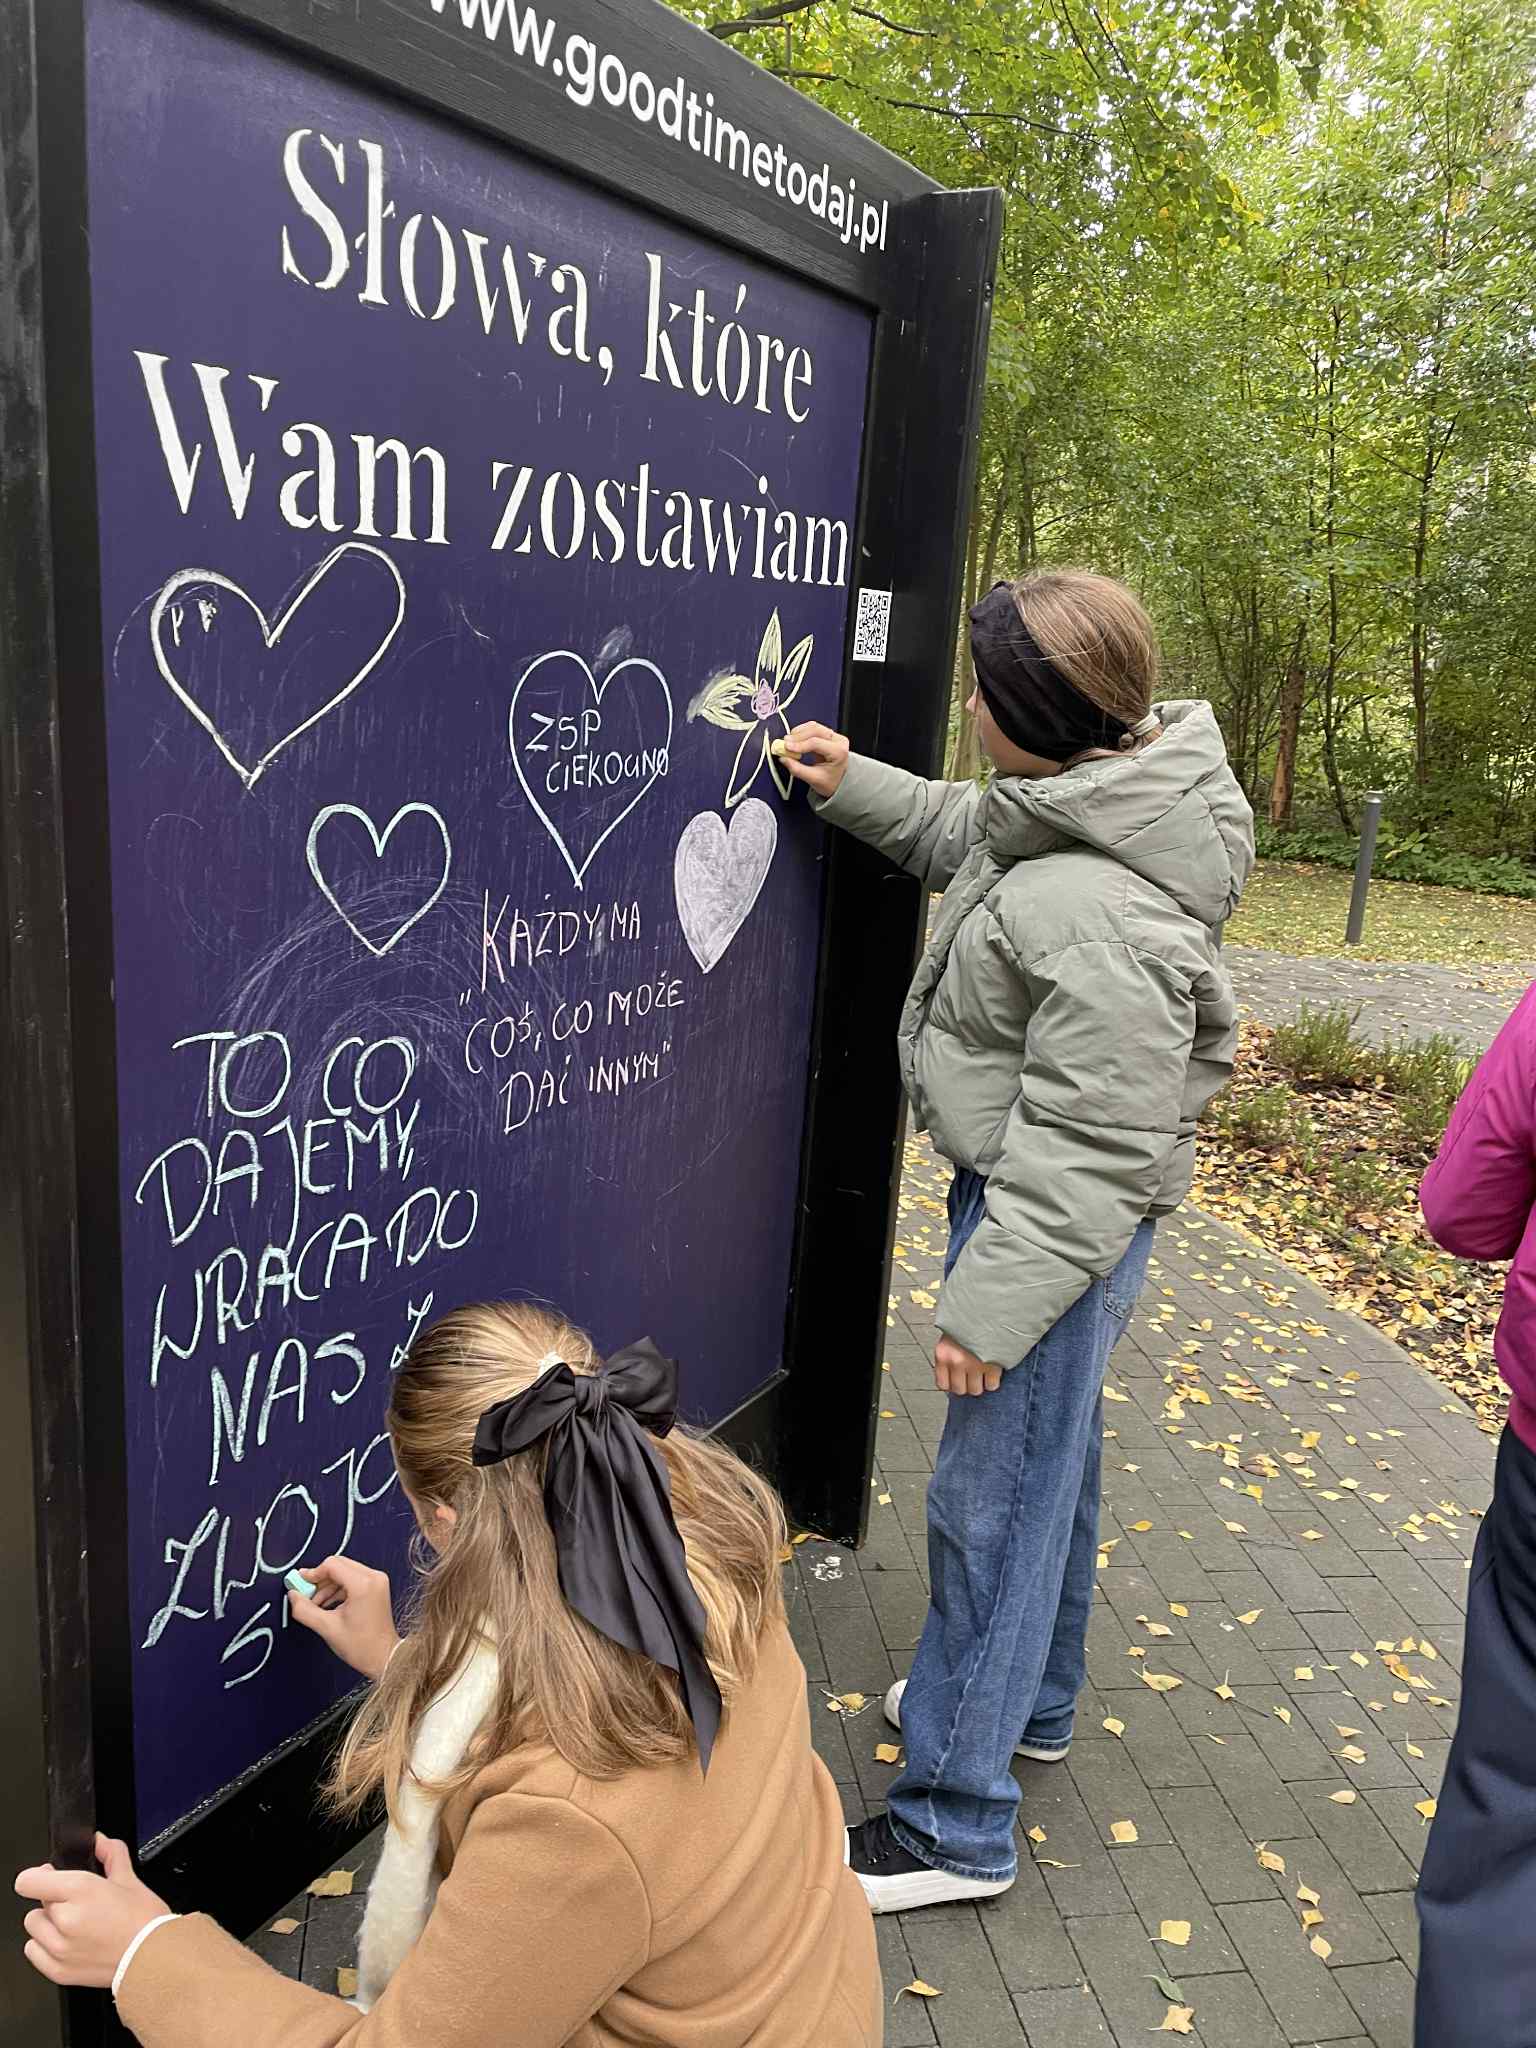 www.goodtimetodaj.pl
Słowa, które
Wam zostawiam
ZSP
CIEKOCINO
KAŻDY MA
„COŚ, CO MOŻE
DAĆ INNYM”
TO CO
DAJEMY,
WRACA DO
NAS Z